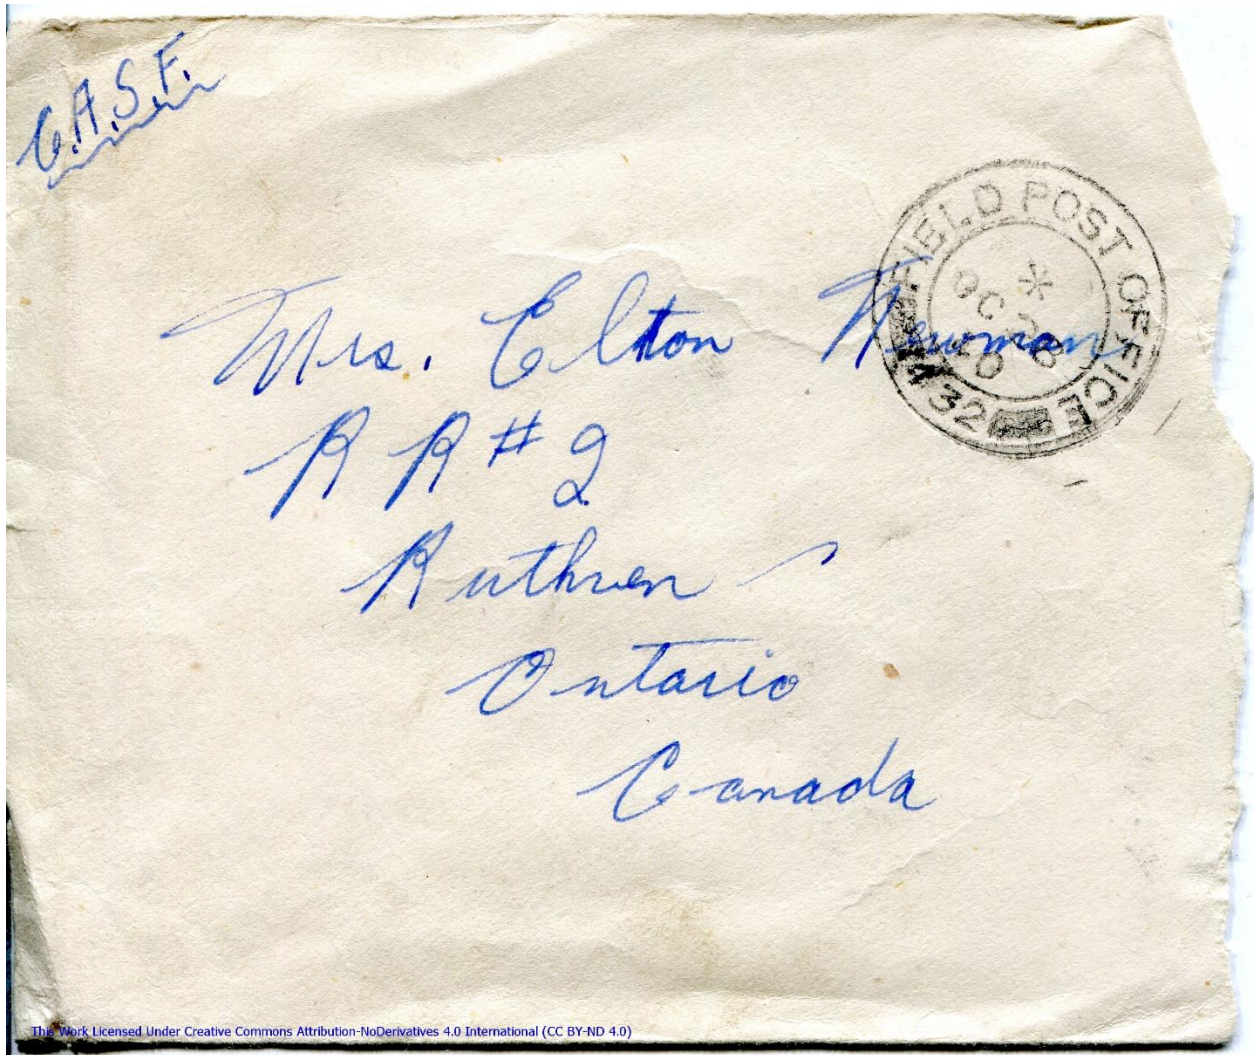 C.A.S.F.
FIELD POST OFFICE
*
OC
40
432
Mrs. Elton Newman
RR #2
Ruthven
Ontario
Canada
This Work Licensed Under Creative Commons Attribution-NoDerivatives 4.0 International (CC BY-ND 4.0)